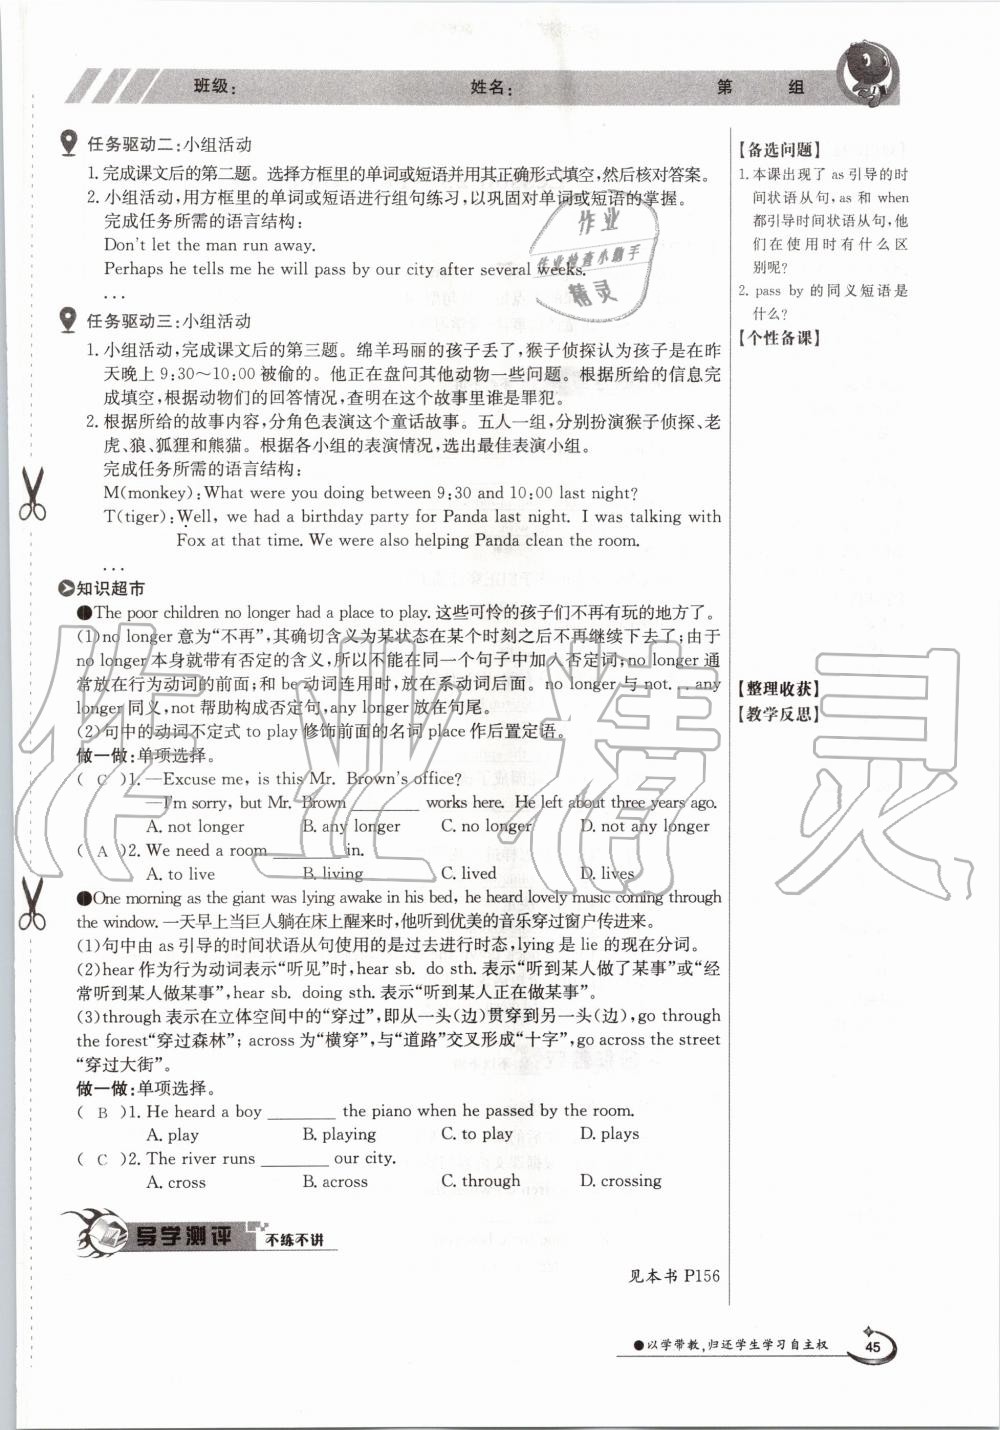 班级：
姓名：
第 组
任务驱动二：小组活动
1. 完成课文后的第二题。选择方框里的单词或短语并用其正确形式填空，然后核对答案。
2. 小组活动，用方框里的单词或短语进行组句练习，以巩固对单词或短语的掌握。
完成任务所需的语言结构：
Don't let the man run away.
Perhaps he tells me he will pass by our city after several weeks.
...
任务驱动三：小组活动
1. 小组活动，完成课文后的第三题。绵羊玛丽的孩子丢了，猴子侦探认为孩子是在昨
天晚上 9:30～10:00 被偷的。他正在盘问其他动物一些问题。根据所给的信息完
成填空，根据动物们的回答情况，查明在这个故事里谁是罪犯。
2. 根据所给的故事内容，分角色表演这个童话故事。五人一组，分别扮演猴子侦探、老
虎、狼、狐狸和熊猫。根据各小组的表演情况，选出最佳表演小组。
完成任务所需的语言结构：
M(monkey): What were you doing between 9:30 and 10:00 last night?
T(tiger): Well, we had a birthday party for Panda last night. I was talking with
Fox at that time. We were also helping Panda clean the room.
...
知识超市
●The poor children no longer had a place to play. 这些可怜的孩子们不再有玩的地方了。
(1)no longer 意为“不再”，其确切含义为某状态在某个时刻之后不再继续下去了；由于
no longer 本身就带有否定的含义，所以不能在同一个句子中加入否定词；no longer 通
常放在行为动词的前面；和 be 动词连用时，放在系动词后面。no longer 与 not... any
longer 同义，not 帮助构成否定句，any longer 放在句尾。
(2)句中的动词不定式 to play 修饰前面的名词 place 作后置定语。
做一做：单项选择。
( C )1. —Excuse me, is this Mr. Brown's office?
—I'm sorry, but Mr. Brown ________ works here. He left about three years ago.
A. not longer B. any longer C. no longer D. not any longer
( A )2. We need a room ________ in.
A. to live B. living C. lived D. lives
●One morning as the giant was lying awake in his bed, he heard lovely music coming through
the window. 一天早上当巨人躺在床上醒来时，他听到优美的音乐穿过窗户传进来。
(1)句中由 as 引导的时间状语从句使用的是过去进行时态，lying 是 lie 的现在分词。
(2)hear 作为行为动词表示“听见”时，hear sb. do sth. 表示“听到某人做了某事”或“经
常听到某人做某事”，hear sb. doing sth. 表示“听到某人正在做某事”。
(3)through 表示在立体空间中的“穿过”，即从一头(边)贯穿到另一头(边)，go through
the forest“穿过森林”；across 为“横穿”，与“道路”交叉形成“十字”，go across the street
“穿过大街”。
做一做：单项选择。
( B )1. He heard a boy ________ the piano when he passed by the room.
A. play B. playing C. to play D. plays
( C )2. The river runs ________ our city.
A. cross B. across C. through D. crossing
导学测评 不练不讲
见本书 P156
【备选问题】
1. 本课出现了 as 引导的时
间状语从句，as 和 when
都引导时间状语从句，他
们在使用时有什么区
别呢？
2. pass by 的同义短语是
什么？
【个性备课】
【整理收获】
【教学反思】
●以学带教，归还学生学习自主权
45
作业
作业检查小助手
精灵
作业精灵